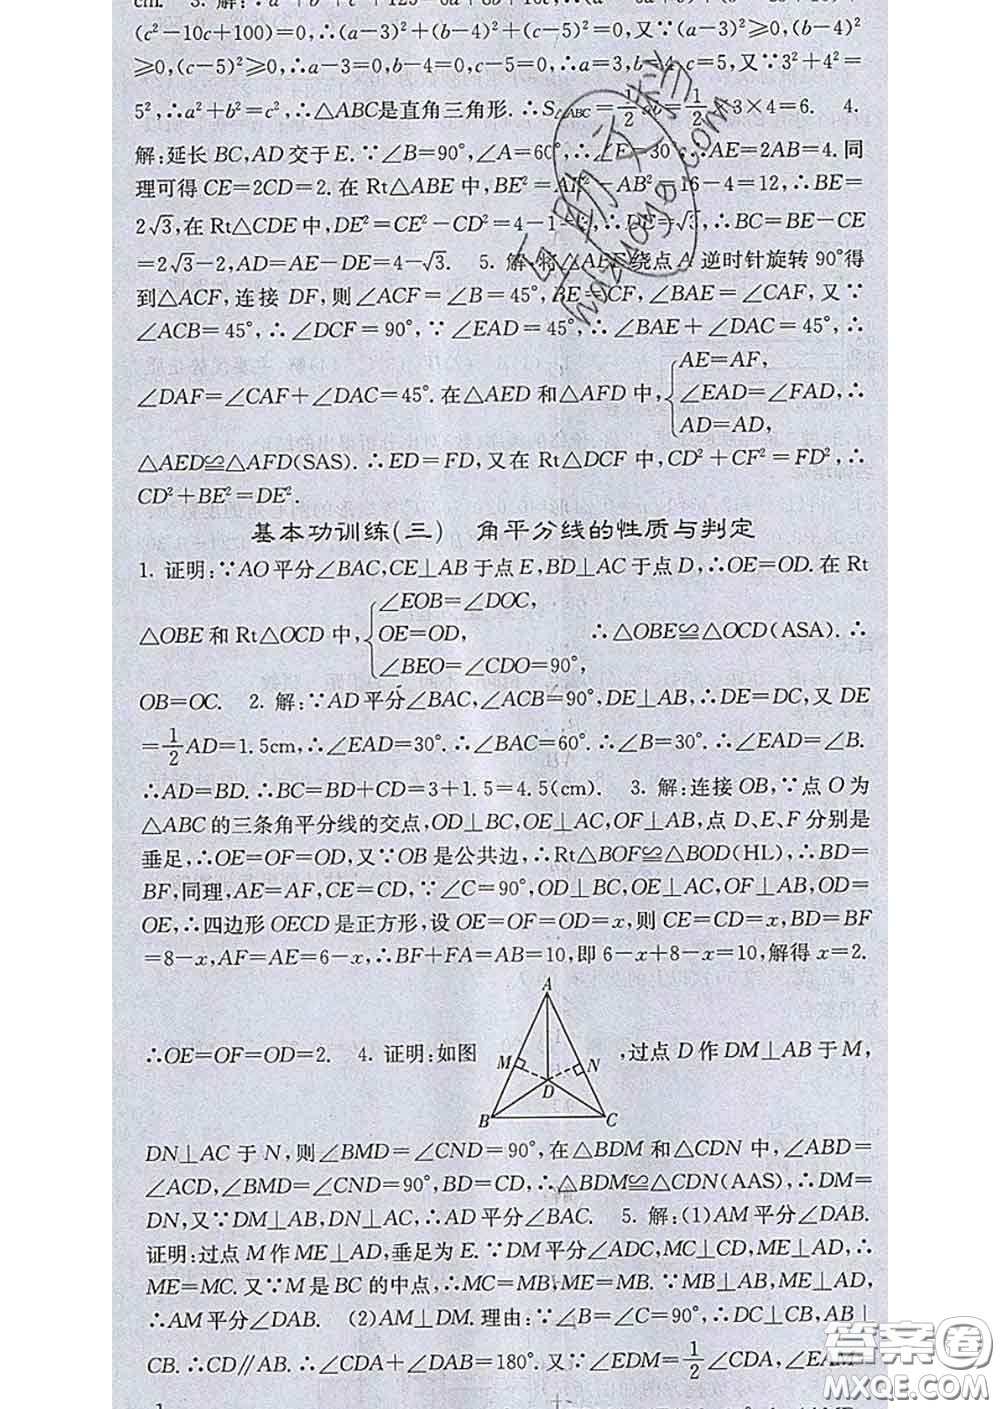 (c²−10c+100)=0,∴(a−3)²+(b−4)²+(c−5)²=0,又∵(a−3)²≥0,(b−4)²
≥0,(c−5)²≥0,∴a−3=0,b−4=0,c−5=0,∴a=3,b=4,c=5,又∵3²+4²=
5²,∴a²+b²=c²,∴△ABC是直角三角形.∴S△ABC=1/2ab=1/2×3×4=6. 4.
解:延长BC,AD交于E.∵∠B=90°,∠A=60°,∴∠E=30°.∴AE=2AB=4.同
理可得CE=2CD=2.在Rt△ABE中,BE²=AE²−AB²=16−4=12,∴BE=
2√3,在Rt△CDE中,DE²=CE²−CD²=4−1=3,∴DE=√3,∴BC=BE−CE
=2√3−2,AD=AE−DE=4−√3. 5. 解:将△ABE绕点A逆时针旋转90°得
到△ACF,连接DF,则∠ACF=∠B=45°,BE=CF,∠BAE=∠CAF,又∵
∠ACB=45°,∴∠DCF=90°,∵∠EAD=45°,∴∠BAE+∠DAC=45°,∴
∠DAF=∠CAF+∠DAC=45°.在△AED和△AFD中,{AE=AF,
∠EAD=∠FAD,∴
AD=AD,
△AED≌△AFD(SAS).∴ED=FD,又在Rt△DCF中,CD²+CF²=FD²,∴
CD²+BE²=DE².
基本功训练(三) 角平分线的性质与判定
1. 证明:∵AO平分∠BAC,CE⊥AB于点E,BD⊥AC于点D,∴OE=OD.在Rt
△OBE和Rt△OCD中,{∠EOB=∠DOC,
OE=OD,
∠BEO=∠CDO=90°,
∴△OBE≌△OCD(ASA).∴
OB=OC. 2. 解:∵AD平分∠BAC,∠ACB=90°,DE⊥AB,∴DE=DC,又DE
=1/2AD=1.5cm,∴∠EAD=30°.∴∠BAC=60°.∴∠B=30°.∴∠EAD=∠B.
∴AD=BD.∴BC=BD+CD=3+1.5=4.5(cm). 3. 解:连接OB,∵点O为
△ABC的三条角平分线的交点,OD⊥BC,OE⊥AC,OF⊥AB,点D、E、F分别是
垂足,∴OE=OF=OD,又∵OB是公共边,∴Rt△BOF≌△BOD(HL),∴BD=
BF,同理,AE=AF,CE=CD,∵∠C=90°,OD⊥BC,OE⊥AC,OF⊥AB,OD=
OE,∴四边形OECD是正方形,设OE=OF=OD=x,则CE=CD=x,BD=BF
=8−x,AF=AE=6−x,∴BF+FA=AB=10,即6−x+8−x=10,解得x=2.
∴OE=OF=OD=2. 4. 证明:如图
A
M
N
D
B
C
,过点D作DM⊥AB于M,
DN⊥AC于N,则∠BMD=∠CND=90°,在△BDM和△CDN中,∠ABD=
∠ACD,∠BMD=∠CND=90°,BD=CD,∴△BDM≌△CDN(AAS),∴DM=
DN,又∵DM⊥AB,DN⊥AC,∴AD平分∠BAC. 5. 解:(1)AM平分∠DAB.
证明:过点M作ME⊥AD,垂足为E.∵DM平分∠ADC,MC⊥CD,ME⊥AD,∴
ME=MC.又∵M是BC的中点,∴MC=MB,ME=MB.∵MB⊥AB,ME⊥AD,
∴AM平分∠DAB. (2)AM⊥DM.理由:∵∠B=∠C=90°,∴DC⊥CB,AB⊥
CB.∴CD∥AB.∴∠CDA+∠DAB=180°.又∵∠EDM=1/2∠CDA,∠EAM
答案圈
MXQE.COM